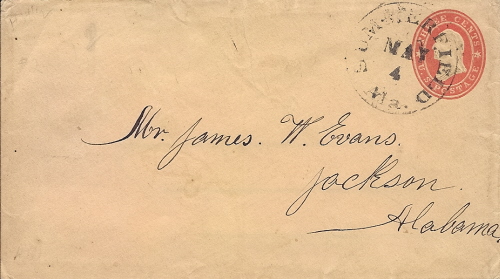 SUMMERFIELD
MAY
4
Ala.
THREE CENTS
U. S. POSTAGE
Mr. James. W. Evans.
Jackson.
Alabama,